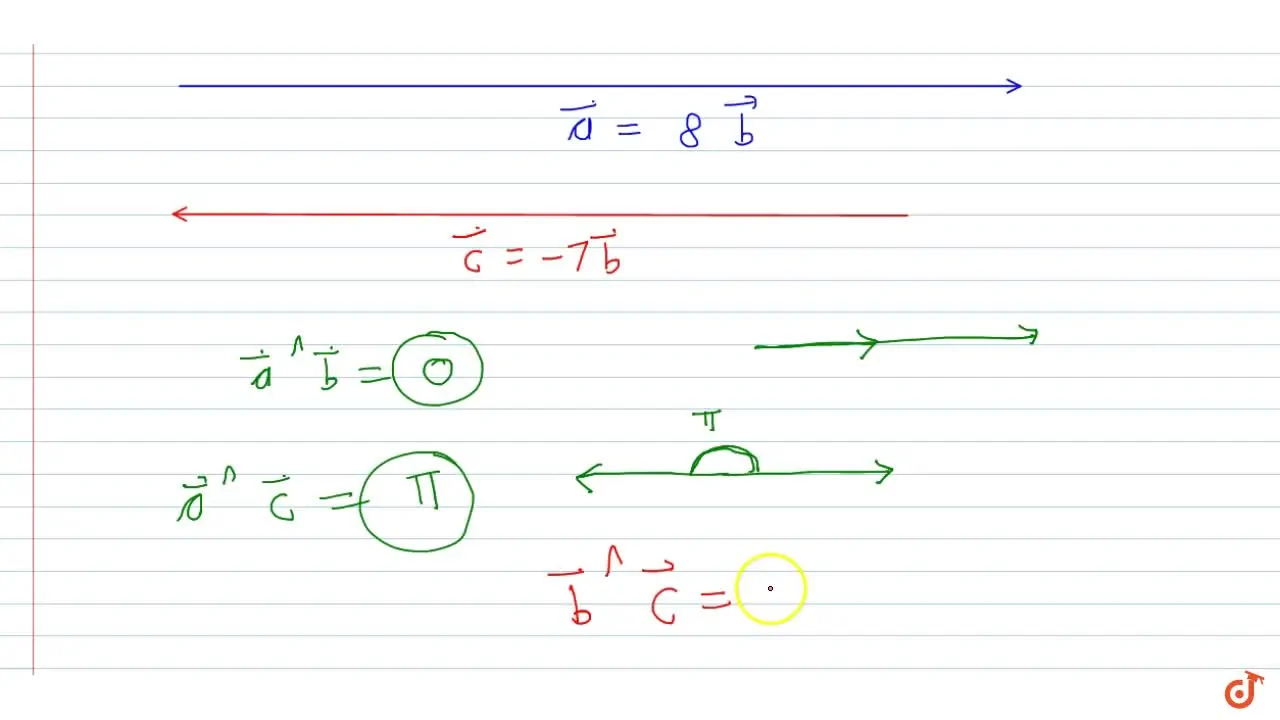 a⃗ = 8 b⃗
c⃗ = -7b⃗
a⃗ ^ b⃗ = 0
π
a⃗ ^ c⃗ = π
b⃗ ^ c⃗ =